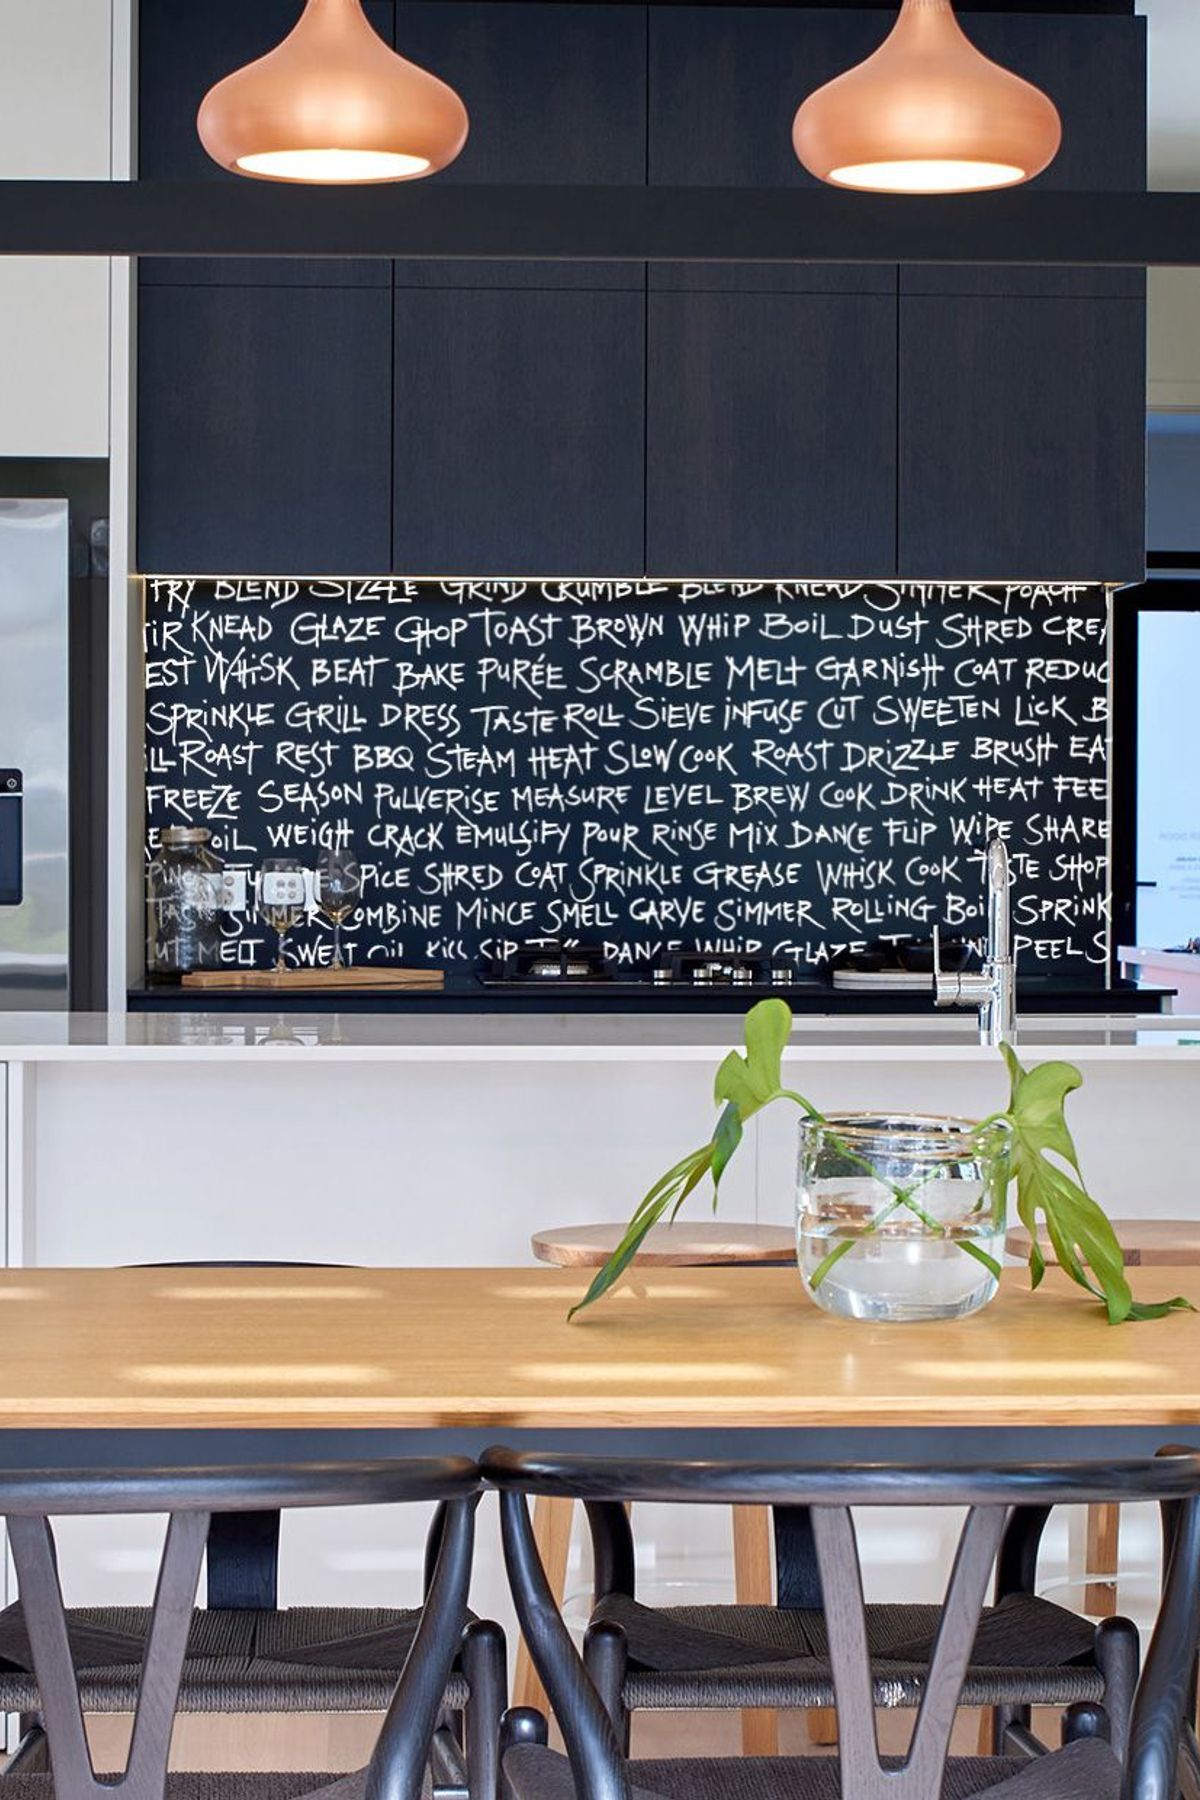 FRY BLEND SIZZLE GRIND CRUMBLE BLEND KNEAD SIMMER POACH
TIR KNEAD GLAZE CHOP TOAST BROWN WHIP BOIL DUST SHRED CREA
EST WHISK BEAT BAKE PURÉE SCRAMBLE MELT GARNISH COAT REDUC
SPRINKLE GRILL DRESS TASTE ROLL SIEVE INFUSE CUT SWEETEN LICK B
ILL ROAST REST BBQ STEAM HEAT SLOW COOK ROAST DRIZZLE BRUSH EAT
FREEZE SEASON PULVERISE MEASURE LEVEL BREW COOK DRINK HEAT FEE
OIL WEIGH CRACK EMULSIFY POUR RINSE MIX DANCE FLIP WIPE SHARE
SPICE SHRED COAT SPRINKLE GREASE WHISK COOK TASTE SHOP
TAST SIMMER COMBINE MINCE SMELL CARVE SIMMER ROLLING BOIL SPRINK
CUT MELT SWEAT OIL KISS SIP DANCE WHIP GLAZE PEEL S